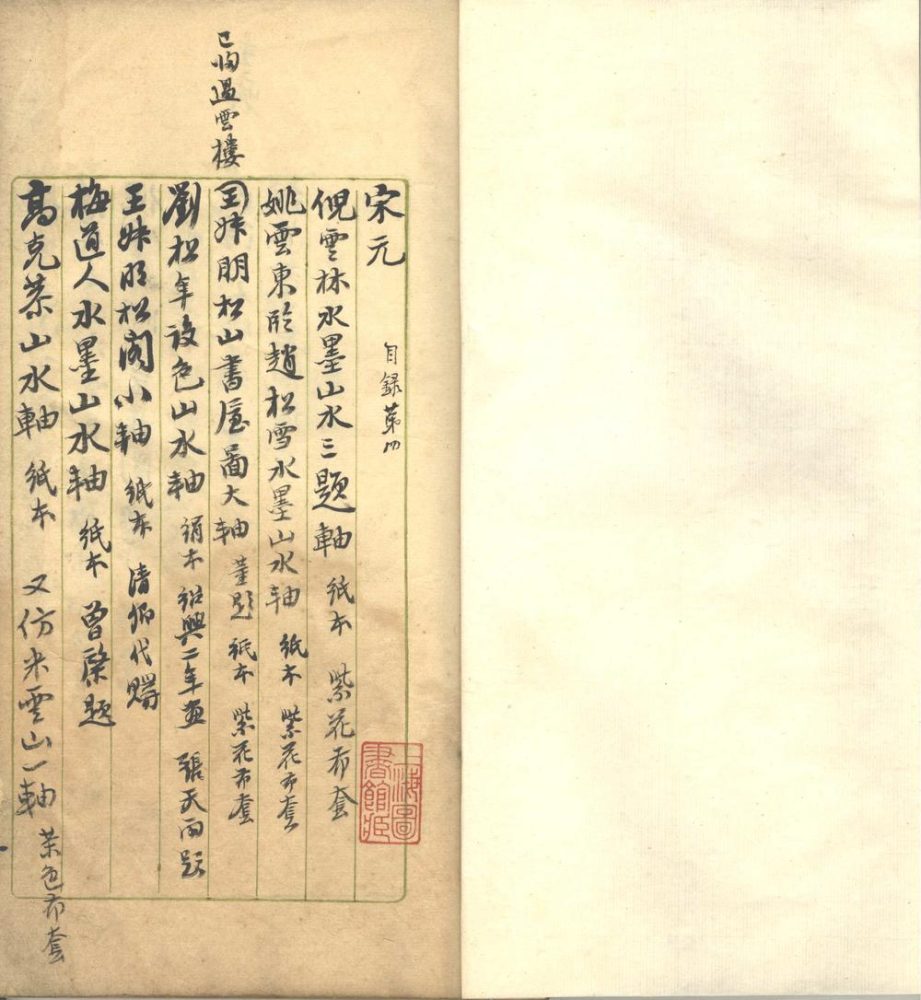 宋元 目錄第四
倪雲林水墨山水三題軸 紙本 紫花布套
姚雲東臨趙松雪水墨山水軸 紙本 紫花布套
已歸過雲樓
王叔明松山書屋圖大軸 董題 紙本 紫花布套
劉松年設色山水軸 絹本 紹興二年畫 張天雨題
王叔明松閣小軸 紙本 清卿代購
梅道人水墨山水軸 紙本 曾棨題
高克恭山水軸 紙本 又仿米雲山一軸 茶色布套
上海圖書館藏